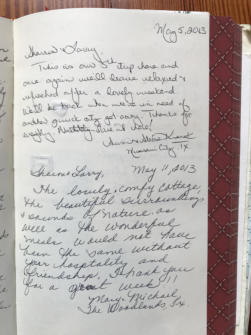 May 5, 2013
Sherri & Larry,
This is our 3rd trip here and
once again we'll leave relaxed &
refreshed after a lovely weekend.
We'll be back when we're in need of
another quick city get away. Thanks for
everything
Missouri City, TX
May 11, 2013
Larry,
The lovely, comfy cottage,
the beautiful surroundings
& sounds of nature as
well as the wonderful
meals would not have
been the same without
your hospitality and
friendship. Thank you
for a great week!!
Mary & Michael
The Woodlands, Tx